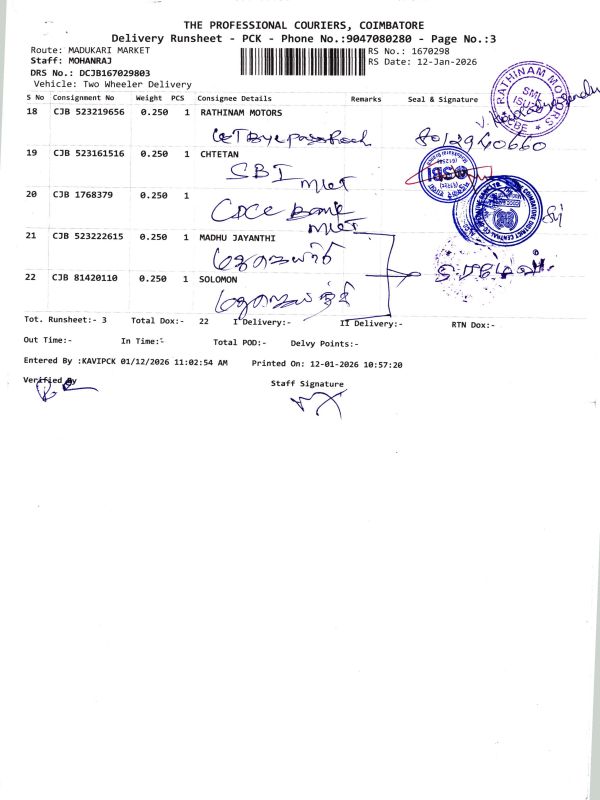 THE PROFESSIONAL COURIERS, COIMBATORE
Delivery Runsheet - PCK - Phone No.:9047080280 - Page No.:3
Route: MADUKARI MARKET RS No.: 1670298
Staff: MOHANRAJ RS Date: 12-Jan-2026
DRS No.: DCJB167029803
Vehicle: Two Wheeler Delivery
S No Consignment No Weight PCS Consignee Details Remarks Seal & Signature
18 CJB 523219656 0.250 1 RATHINAM MOTORS
8012940660
RATHINAM MOTORS
SML
ISUZU
CBE
19 CJB 523161516 0.250 1 CHTETAN
SBI
MKT
SBI
20 CJB 1768379 0.250 1
CDCC Bank
MKT
21 CJB 523222615 0.250 1 MADHU JAYANTHI
22 CJB 81420110 0.250 1 SOLOMON
Tot. Runsheet:- 3 Total Dox:- 22 I Delivery:- II Delivery:- RTN Dox:-
Out Time:- In Time:- Total POD:- Delvy Points:-
Entered By :KAVIPCK 01/12/2026 11:02:54 AM Printed On: 12-01-2026 10:57:20
Verified By Staff Signature